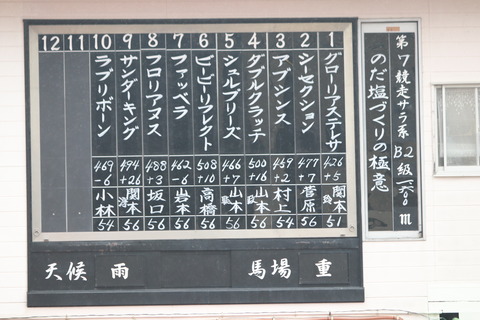 第7競走サラ系B2級一六〇〇m
のだ塩づくりの極意
1 グローリアステレサ 426 +5 関本 51
2 シーセクション 477 +7 菅原 56
3 アブシンス 459 +2 村上 56
4 ダブルクラッチ 500 +16 山本 56
5 シュルブリーズ 466 +7 山本 56
6 ビービーリフレクト 508 +10 高橋 56
7 ファッベラ 462 -6 岩本 54
8 フロリアヌス 488 +3 坂口 56
9 サンダーキング 494 +26 関本 56
10 ラブリボーン 469 -6 小林 54
11
12
天候 雨 馬場 重